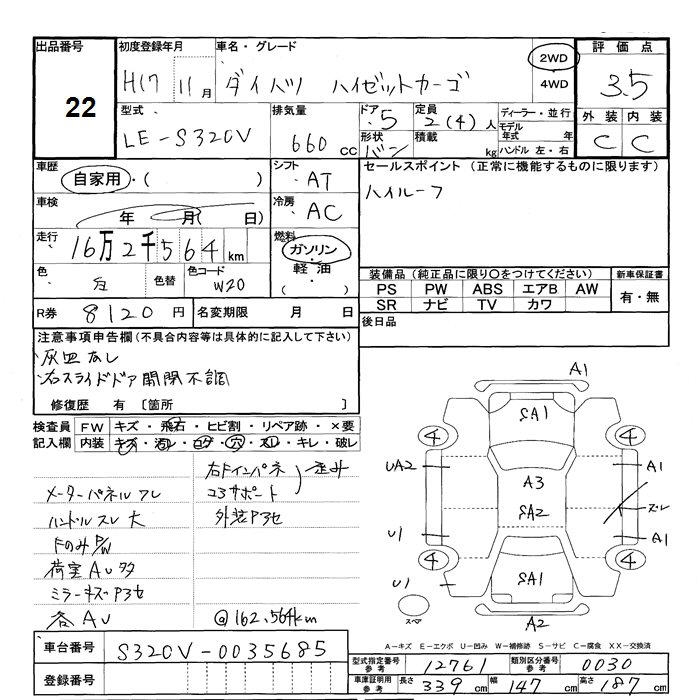 出品番号 初度登録年月 車名・グレード 2WD 4WD 評価点
22 H17 11月 ダイハツ ハイゼットカーゴ 3.5
型式 排気量 ドア 定員 ディーラー・並行 外装 内装
LE-S320V 660cc 5 2(4)人 モデル年式 年 C C
形状 バン 積載 kg ハンドル 左・右
車歴 自家用・( ) シフト AT セールスポイント (正常に機能するものに限ります)
ハイルーフ
車検 年 月( 日) 冷房 AC
走行 16万2千564km 燃料 ガソリン・軽油・( )
色 白 色替 色コード W20
装備品(純正品に限り○をつけてください) 新車保証書
PS PW ABS エアB AW 有・無
SR ナビ TV カワ
R券 8120円 名変期限 月 日 後日品
注意事項申告欄(不具合内容等は具体的に記入して下さい)
灰皿なし
右スライドドア開閉不調
修復歴 有 [箇所 ]
検査員記入欄 FW キズ・飛石・ヒビ割・リペア跡・×要
内装 キズ・汚レ・コゲ・穴・スレ・キレ・破レ
右ドインパネ 歪み
コアサポート
メーターパネルワレ
外装P3セ
ハンドルスレ大
荷室AU多
ミラーキズP3セ
各AU @162,564km
A1
SA1
4 4
UA2 A3 A1
SA2 ズレ
U1 A1
4 4
U1 SA1
スペア A2
A-キズ E-エクボ U-凹み W-補修跡 S-サビ C-腐食 XX-交換済
車台番号 S320V-0035685
登録番号
型式指定番号参考 12761 類別区分番号参考 0030
車庫証明用参考 長さ 339cm 幅 147cm 高さ 187cm